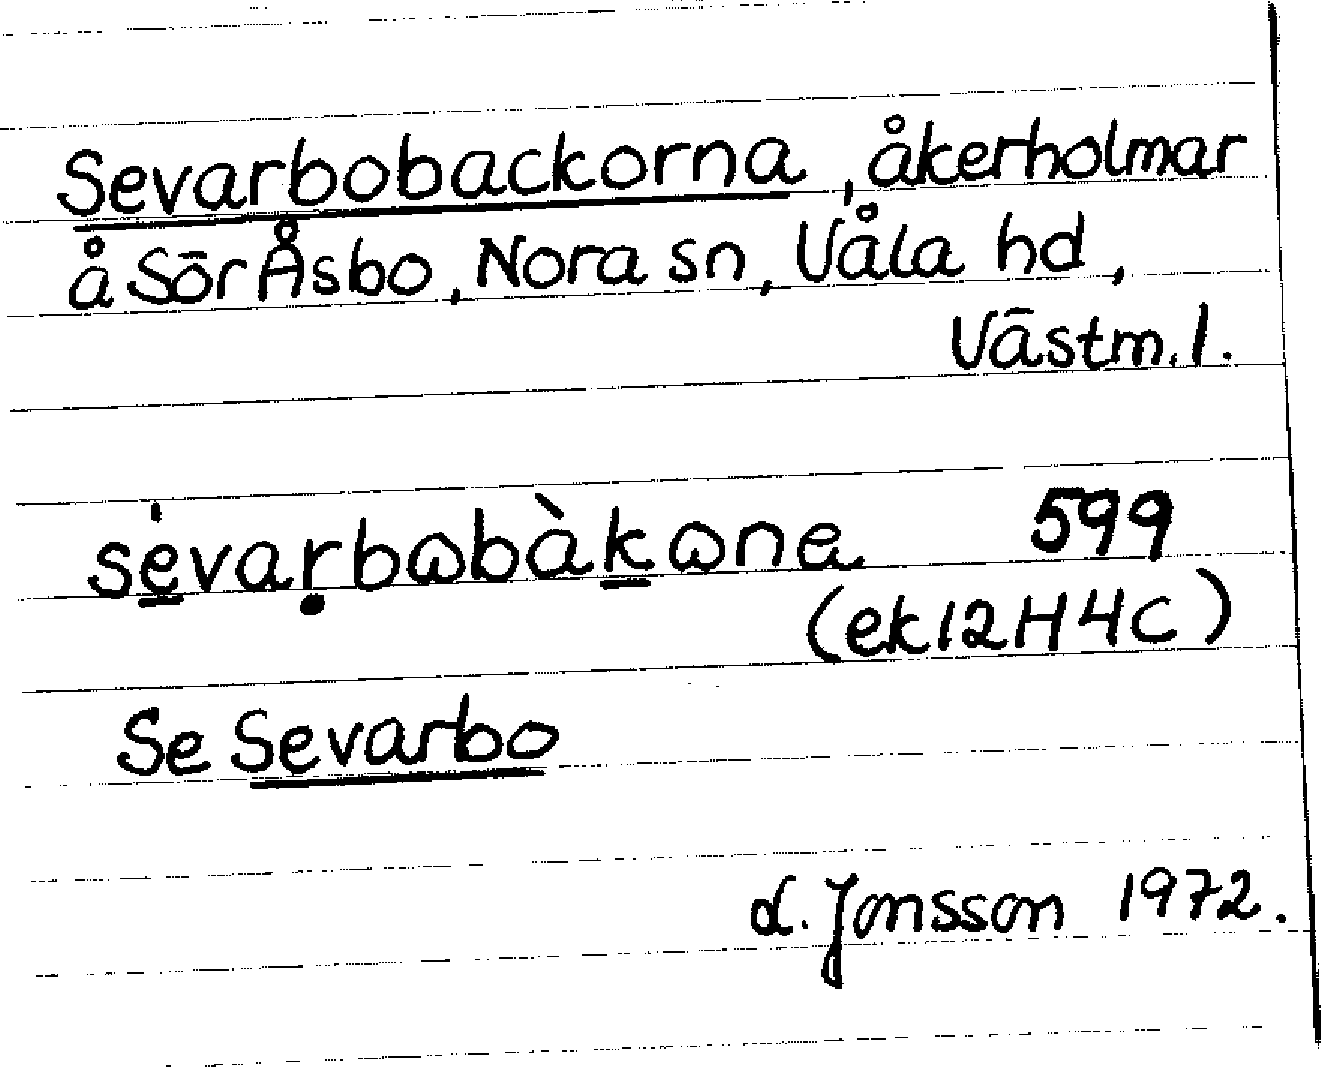 Sevarbobackorna, åkerholmar
å Sör Åsbo, Nora sn, Våla hd,
Västm. l.
sévarbωbàkωna 599
(ek 12H4C)
Se Sevarbo
L. Jonsson 1972.